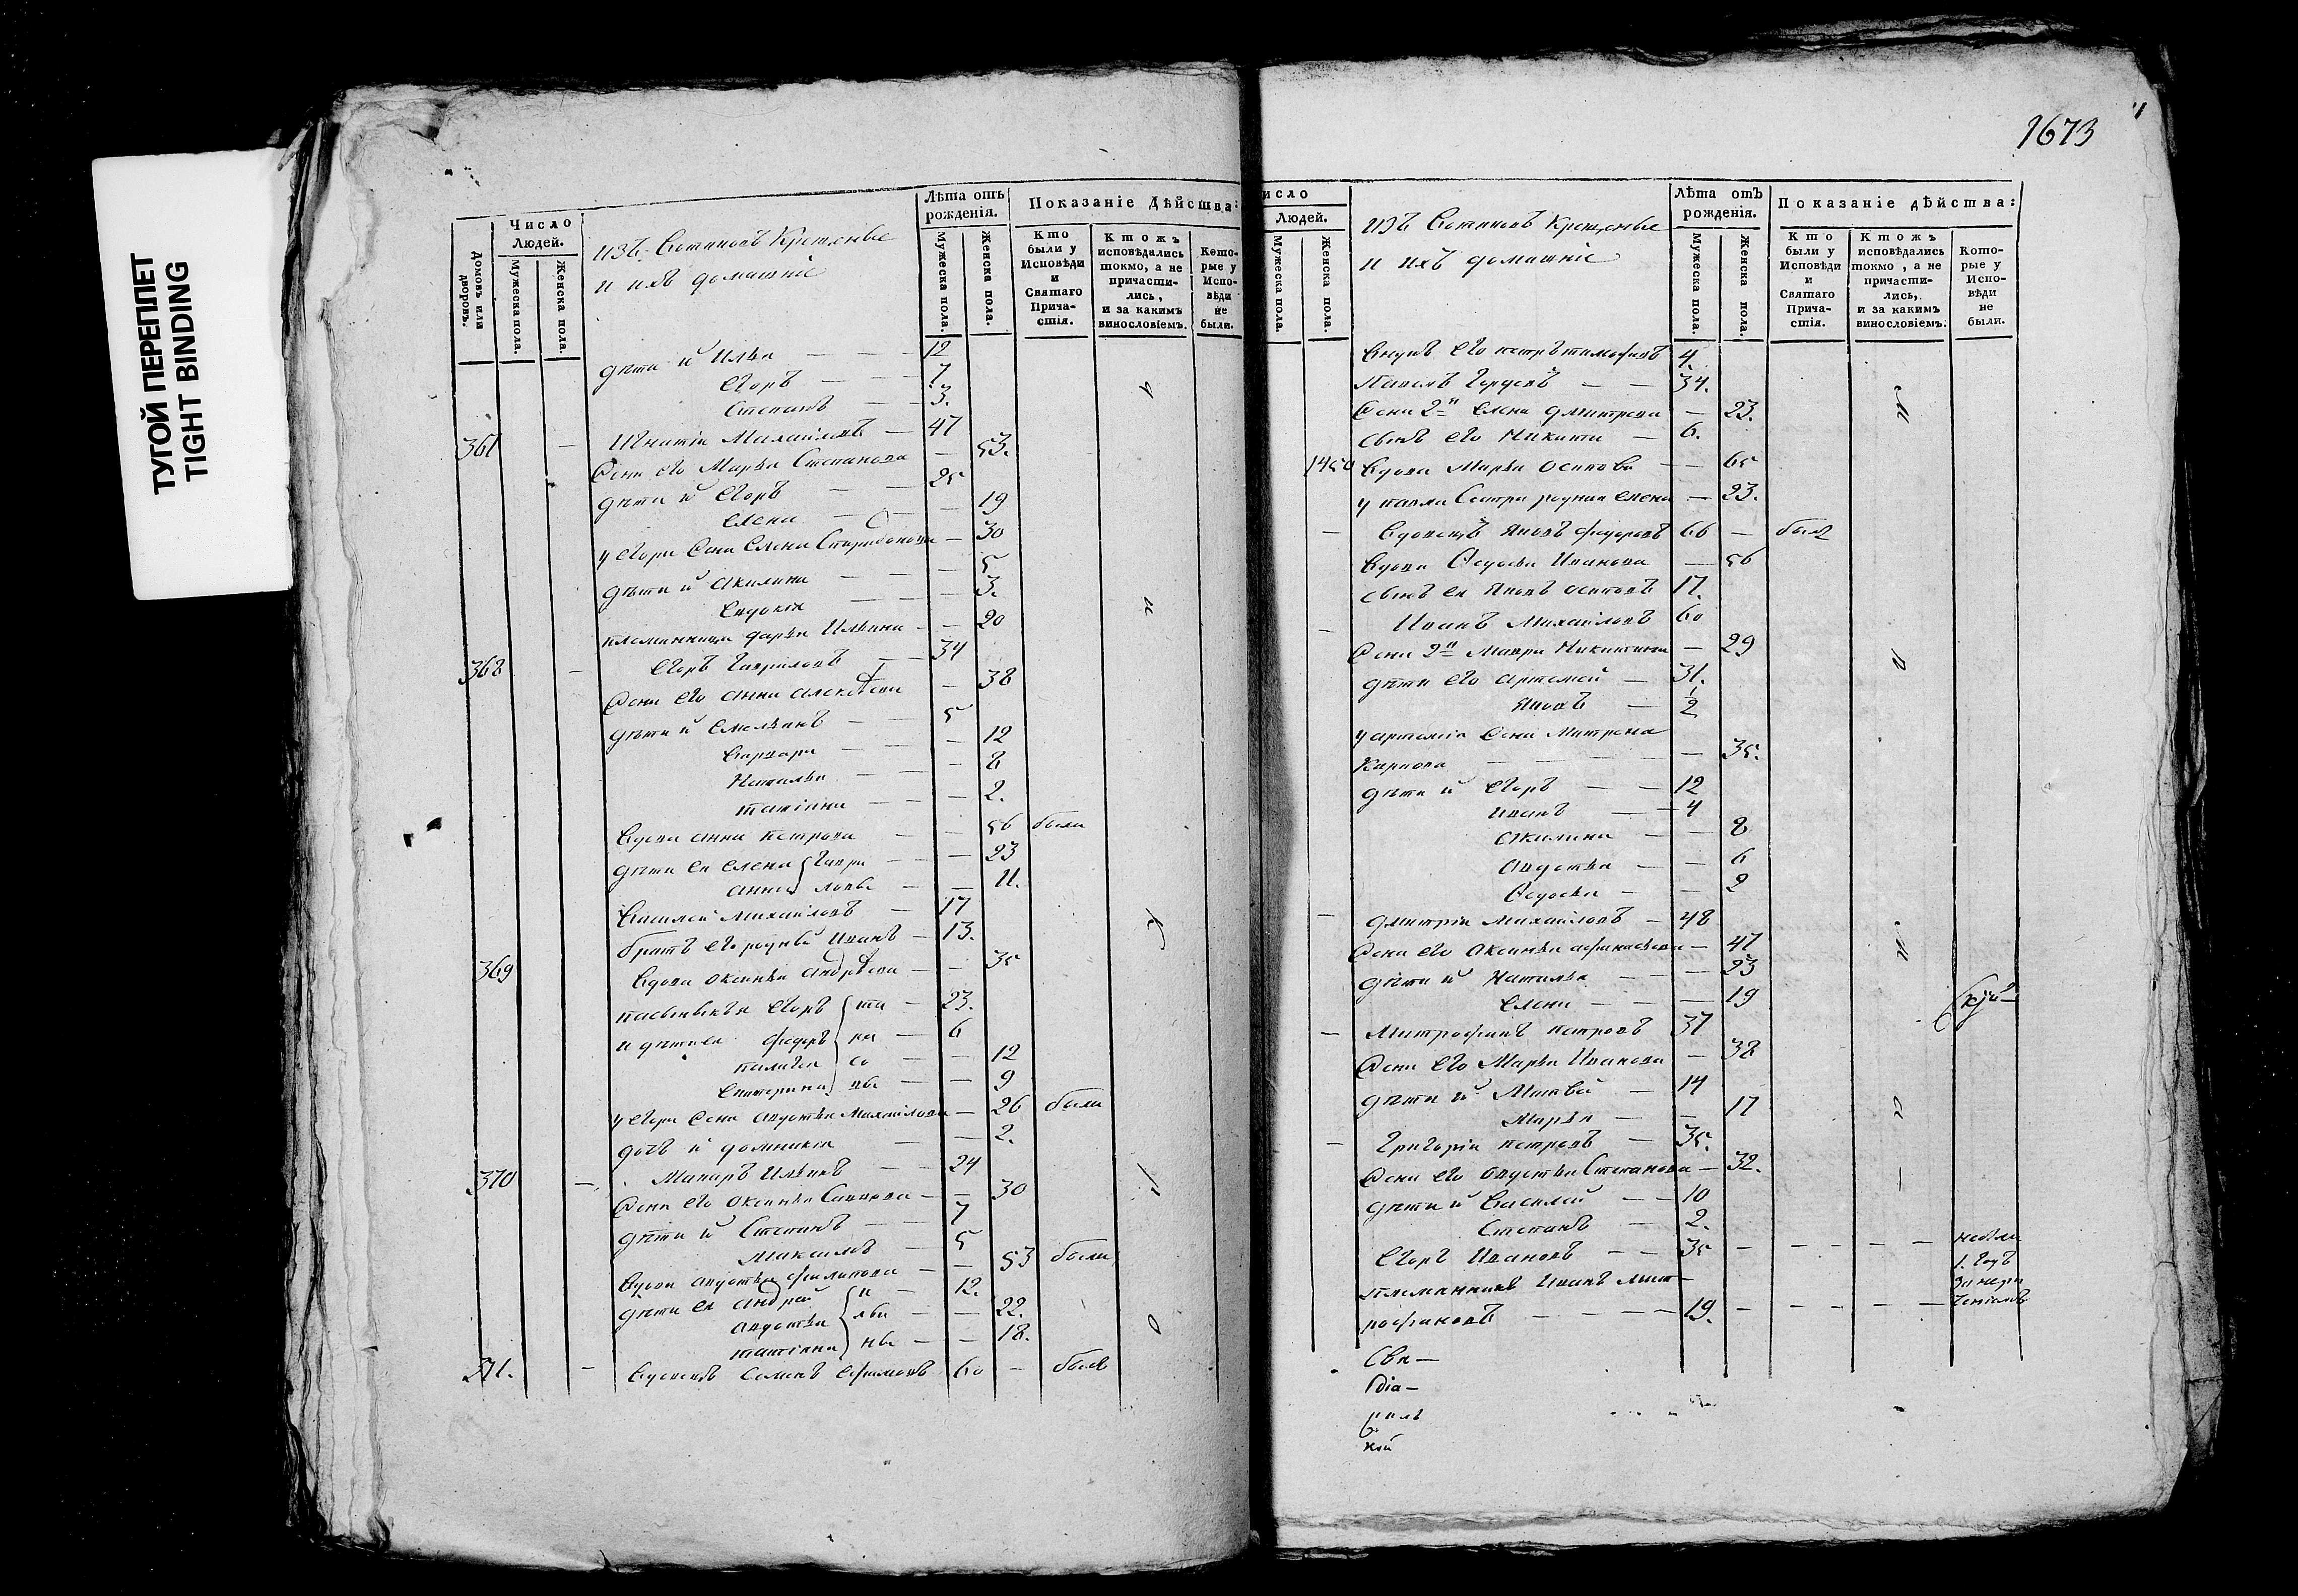 ТУГОЙ ПЕРЕПЛЕТ
TIGHT BINDING
Число
Людей.
Домовъ или дворовъ.
Мужеска пола.
Женска пола.
изъ Вотяковъ Крещеные
и ихъ домашніе
Лѣта отъ
рожденія.
Мужеска пола.
Женска пола.
Показаніе Дѣйства:
Кто
были у
Исповѣди
и
Святаго
Прича-
стія.
Ктожъ
исповѣдались
токмо, а не
причасти-
лись,
и за какимъ
винословіемъ.
Кото-
рые у
Испо-
вѣди
не
были.
дѣти и Илья — — 12
Егоръ — — 7.
Степанъ — 3.
367 — Игнатіи Михаиловъ — 47
Жена его Марья Степанова — 53.
дѣти и Егоръ — — 25
Елена — — 19
у Егора жена Елена Спиридонова — 30
дѣти и Акилина — — — 5
Евдокія — — — 3.
племянница Дарья Ильина — — 20
368 — Егоръ Гавриловъ — — 34
Жена его Анна Алексѣева — 38
дѣти и Емельянъ — — 5
Варвара — — 12
Наталья — — — 8
татіяна — — — 2.
Вдова Анна Петрова — — 56 была
дѣти ея Елена Гаври — — 23
Анна ловы — — 11.
Василей Михаиловъ — 17
братъ его родный Иванъ — 13.
369 Вдова Оксинья Андрѣева — — 35
пасынькъ Егоръ та — 23.
и дѣти ея Федоръ ра — 6
палагея со — — 12
Екатерина вы — — 9
у Егора жена Авдотья Михаилова — 26 была
дочь и домникія — — 2.
370 — Макаръ Ильинъ — — 24
Жена его Оксинья Саввина — — 30
дѣти и Степанъ — — 7
Максимъ — 5
Вдова Авдотья Филипова — — 53 была
дѣти ея Андрей и — 12.
Авдотья лья — — 22.
татіяна ны — — 18.
371. — Вдовецъ Семенъ Ефимовъ 60 — былъ
1673
исло
Людей.
Мужеска пола.
Женска пола.
изъ Вотяковъ Крещеные
и ихъ домашніе
Лѣта отъ
рожденія.
Мужеска пола.
Женска пола.
Показаніе дѣйства:
Кто
были у
Исповѣди
и
Святаго
Прича-
стія.
Ктожъ
исповѣдались
токмо, а не
причасти-
лись,
и за какимъ
винословіемъ.
Кото-
рые у
Испо-
вѣди
не
были.
внукъ его петръ тимофеевъ 4.
Павелъ — — 34.
Жена 2я Елена дмитрева — 23.
сынъ его Никита — 6.
1450 Вдова Марья Осипова — — 65
у павла Сестра родная Елена — 23.
— Вдовецъ Яковъ Федоровъ 66 — былъ
Вдова Федосья Иванова — 56
сынъ ея Яковъ Осиповъ 17.
— Иванъ Михаиловъ 60
Жена 2я Мавра Никитина — 29
дѣти его Артемей — 31.
Яковъ — ½
у артемія жена Матрена
Карпова — — — — — 35.
дѣти и Егоръ — — 12
Иванъ — 4
Акилина — — 8
Авдотья — — 6
Федосья — — 2
— Дмитріи Михаиловъ — 48
Жена его Оксинья Афанасьева — 47
дѣти и Наталья — — — 23
Елена — — — 19
— Митрофанъ Петровъ 37
Жена его Марья Иванова — 38
дѣти и Матвѣй — 14
Марья — — 17
— Григоріи Петровъ — 35.
Жена его Авдотья Степанова — 32.
дѣти и Василей — — 10
Степанъ — 2.
Егоръ Ивановъ — — 35 — — — — — небыли
1. годъ
племянникъ Иванъ Мит-
рофановъ — — — 19. — — — — —
Свя-